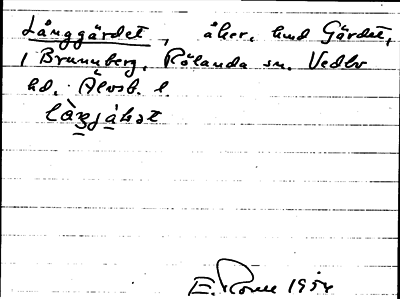 Långgärdet, åker, hmd Gärdet,
1 Brunnberg, Rölanda sn. Vedbo
hd. Älvsb. l.
E. Rome 1954